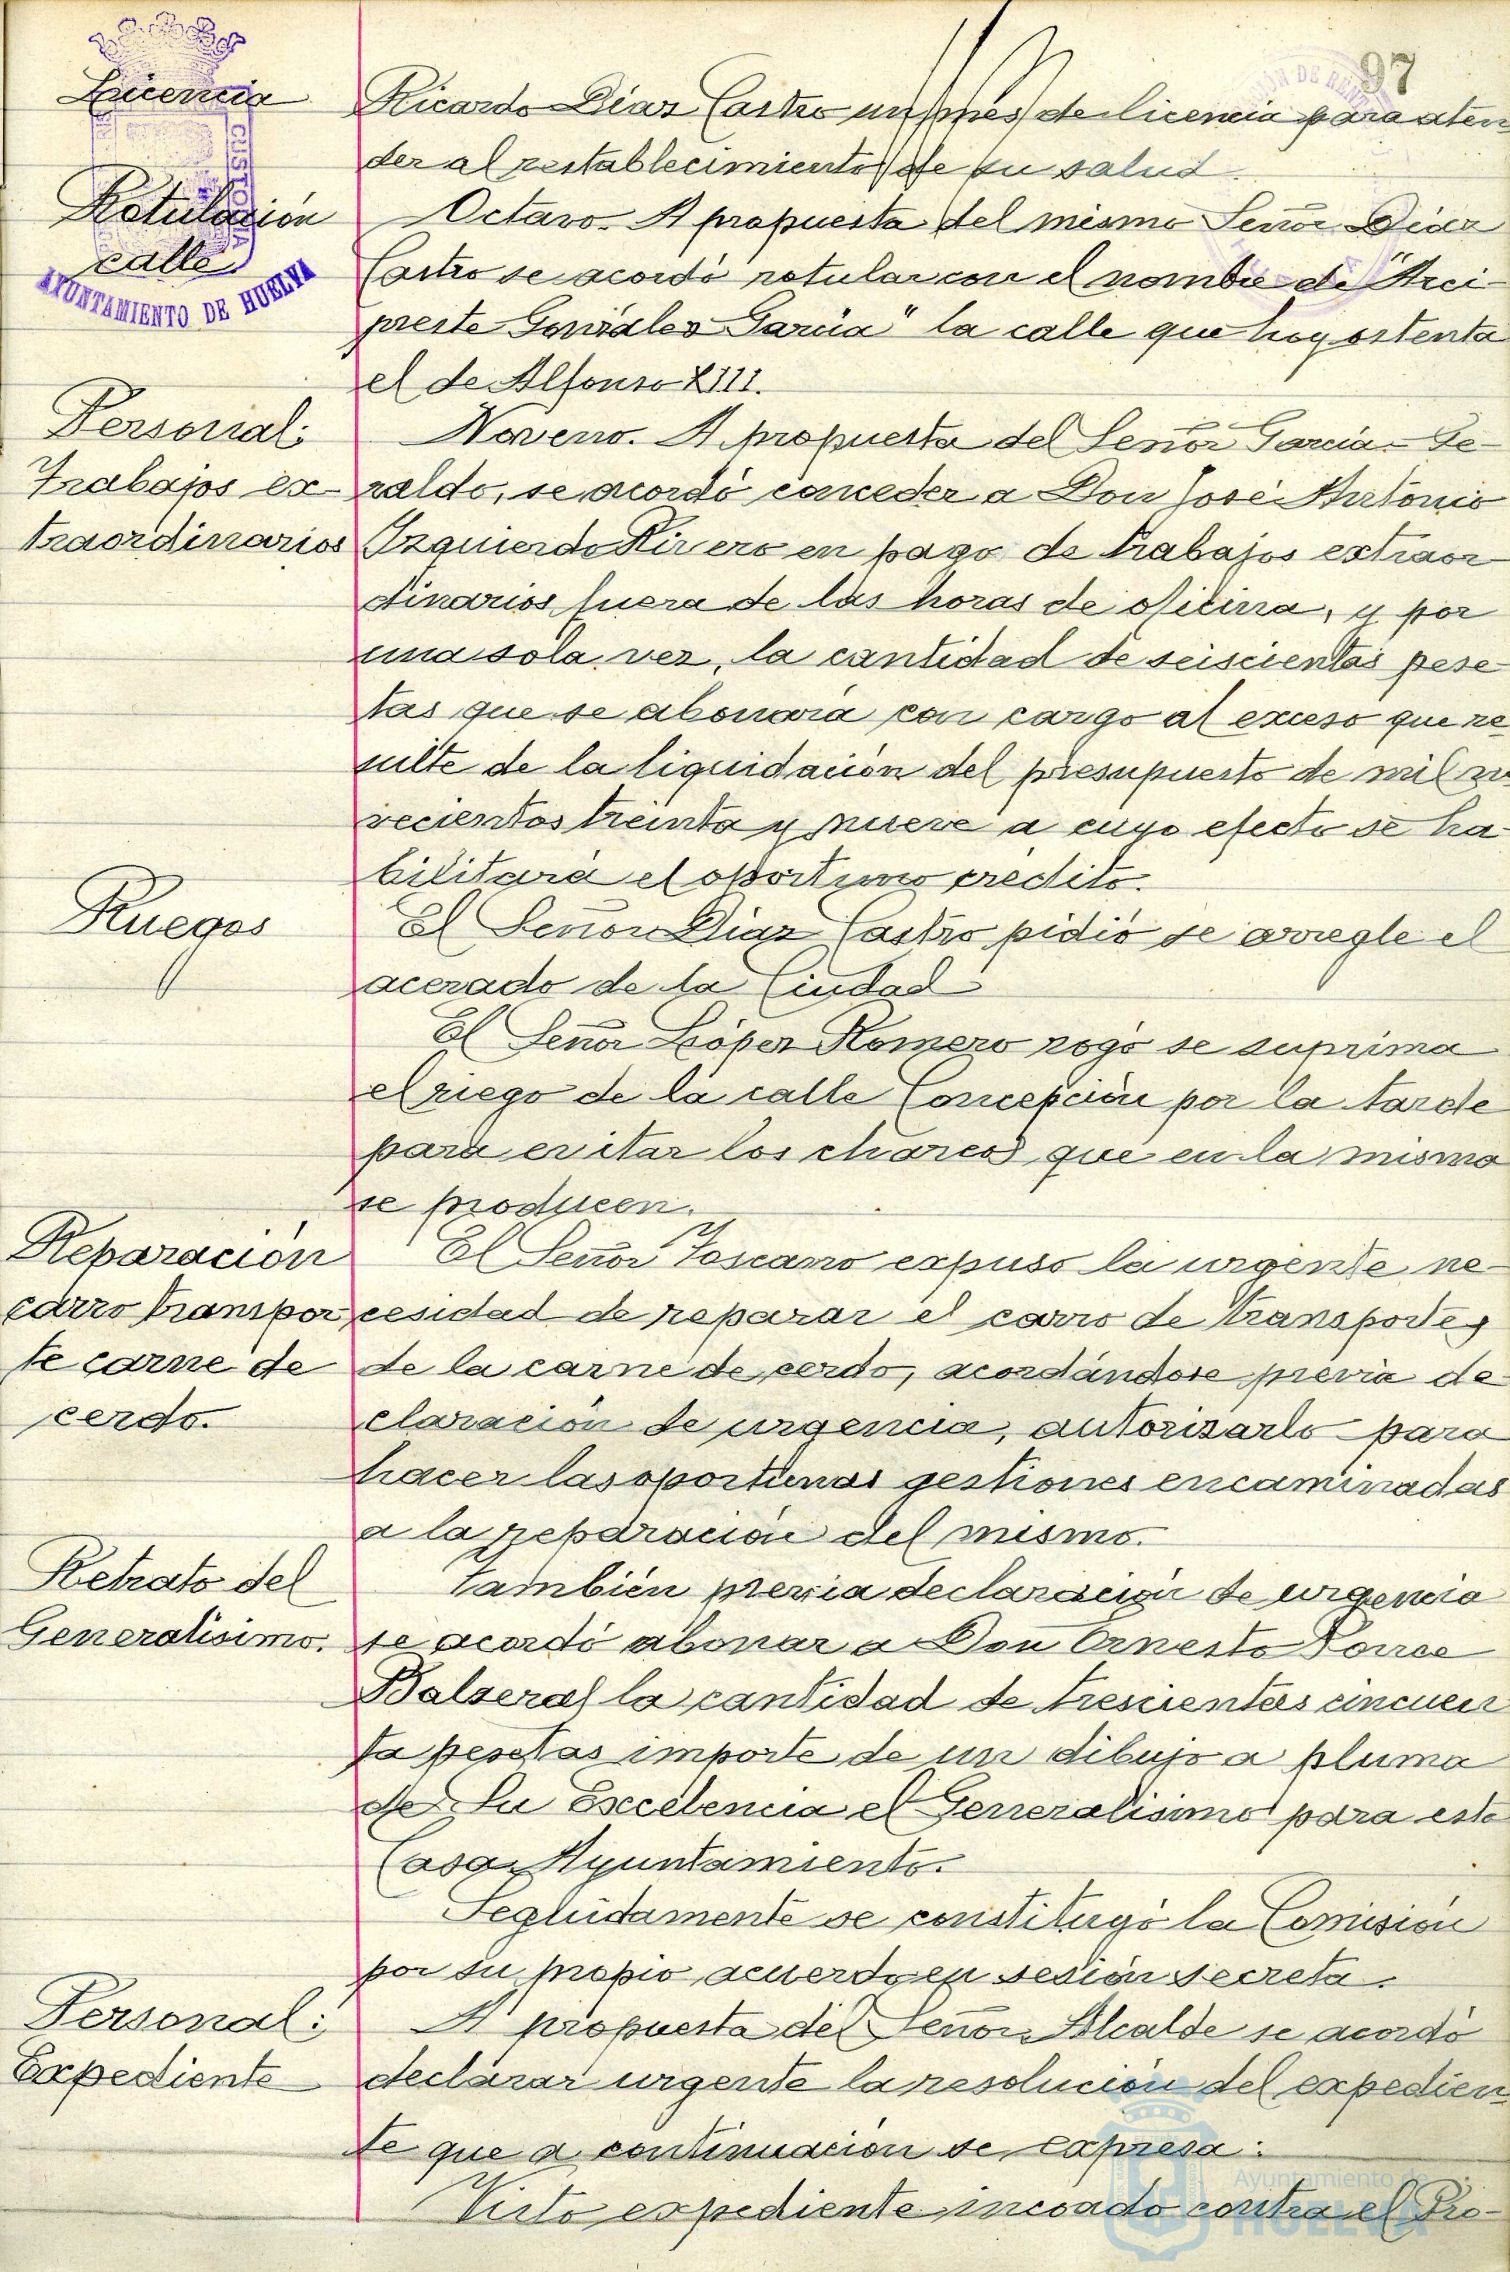 97
Licencia
Ricardo Díaz Castro un mes de licencia para aten
der al restablecimiento de su salud.
Rotulación
calle
AYUNTAMIENTO DE HUELVA
Octavo. A propuesta del mismo Señor Díaz
Castro se acordó rotular con el nombre de "Arci-
preste González García" la calle que hoy ostenta
el de Alfonso XIII.
Personal:
Trabajos ex-
traordinarios
Noveno. A propuesta del Señor García-Ge-
raldo, se acordó conceder a Don José Antonio
Izquierdo Rivero en pago de trabajos extraor
dinarios fuera de las horas de oficina, y por
una sola vez, la cantidad de seiscientas pese-
tas que se abonará con cargo al exceso que re
sulte de la liquidación del presupuesto de mil no
vecientos treinta y nueve a cuyo efecto se ha-
bilitará el oportuno crédito.
Ruegos
El Señor Díaz Castro pidió se arregle el
acerado de la Ciudad
El Señor López Romero rogó se suprima
el riego de la calle Concepción por la tarde
para evitar los charcos que en la misma
se producen.
Reparación
carro transpor
te carne de
cerdo.
El Señor Toscano expuso la urgente ne-
cesidad de reparar el carro de transporte
de la carne de cerdo, acordándose previa de-
claración de urgencia, autorizarlo para
hacer las oportunas gestiones encaminadas
a la reparación del mismo.
Retrato del
Generalísimo.
También previa declaración de urgencia
se acordó abonar a Don Ernesto
la cantidad de trescientas cincuen
ta pesetas importe de un dibujo a pluma
de Su Excelencia el Generalísimo para esta
Casa Ayuntamiento.
Seguidamente se constituyó la Comisión
por su propio acuerdo en sesión secreta.
Personal:
Expediente
A propuesta del Señor Alcalde se acordó
declarar urgente la resolución del expedien
te que a continuación se expresa:
Visto expediente incoado contra el Pro-
Ayuntamiento de
HUELVA